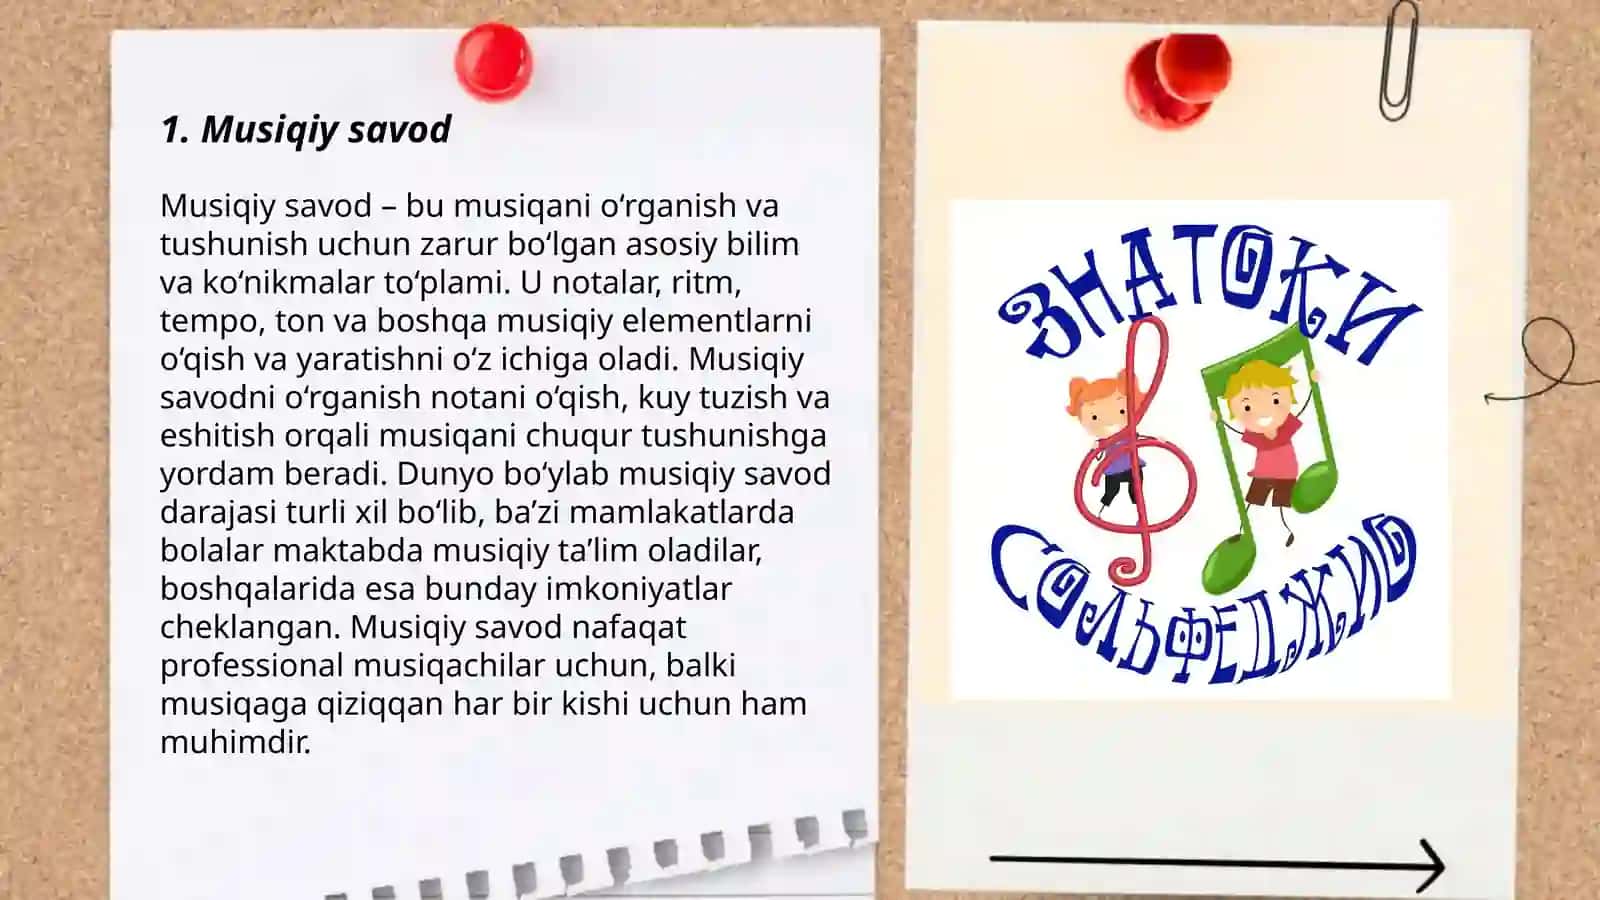 1. Musiqiy savod
Musiqiy savod – bu musiqani o‘rganish va
tushunish uchun zarur bo‘lgan asosiy bilim
va ko‘nikmalar to‘plami. U notalar, ritm,
tempo, ton va boshqa musiqiy elementlarni
o‘qish va yaratishni o‘z ichiga oladi. Musiqiy
savodni o‘rganish notani o‘qish, kuy tuzish va
eshitish orqali musiqani chuqur tushunishga
yordam beradi. Dunyo bo‘ylab musiqiy savod
darajasi turli xil bo‘lib, ba’zi mamlakatlarda
bolalar maktabda musiqiy ta’lim oladilar,
boshqalarida esa bunday imkoniyatlar
cheklangan. Musiqiy savod nafaqat
professional musiqachilar uchun, balki
musiqaga qiziqqan har bir kishi uchun ham
muhimdir.
ЗНАТОКИ
СОЛЬФЕДЖИО